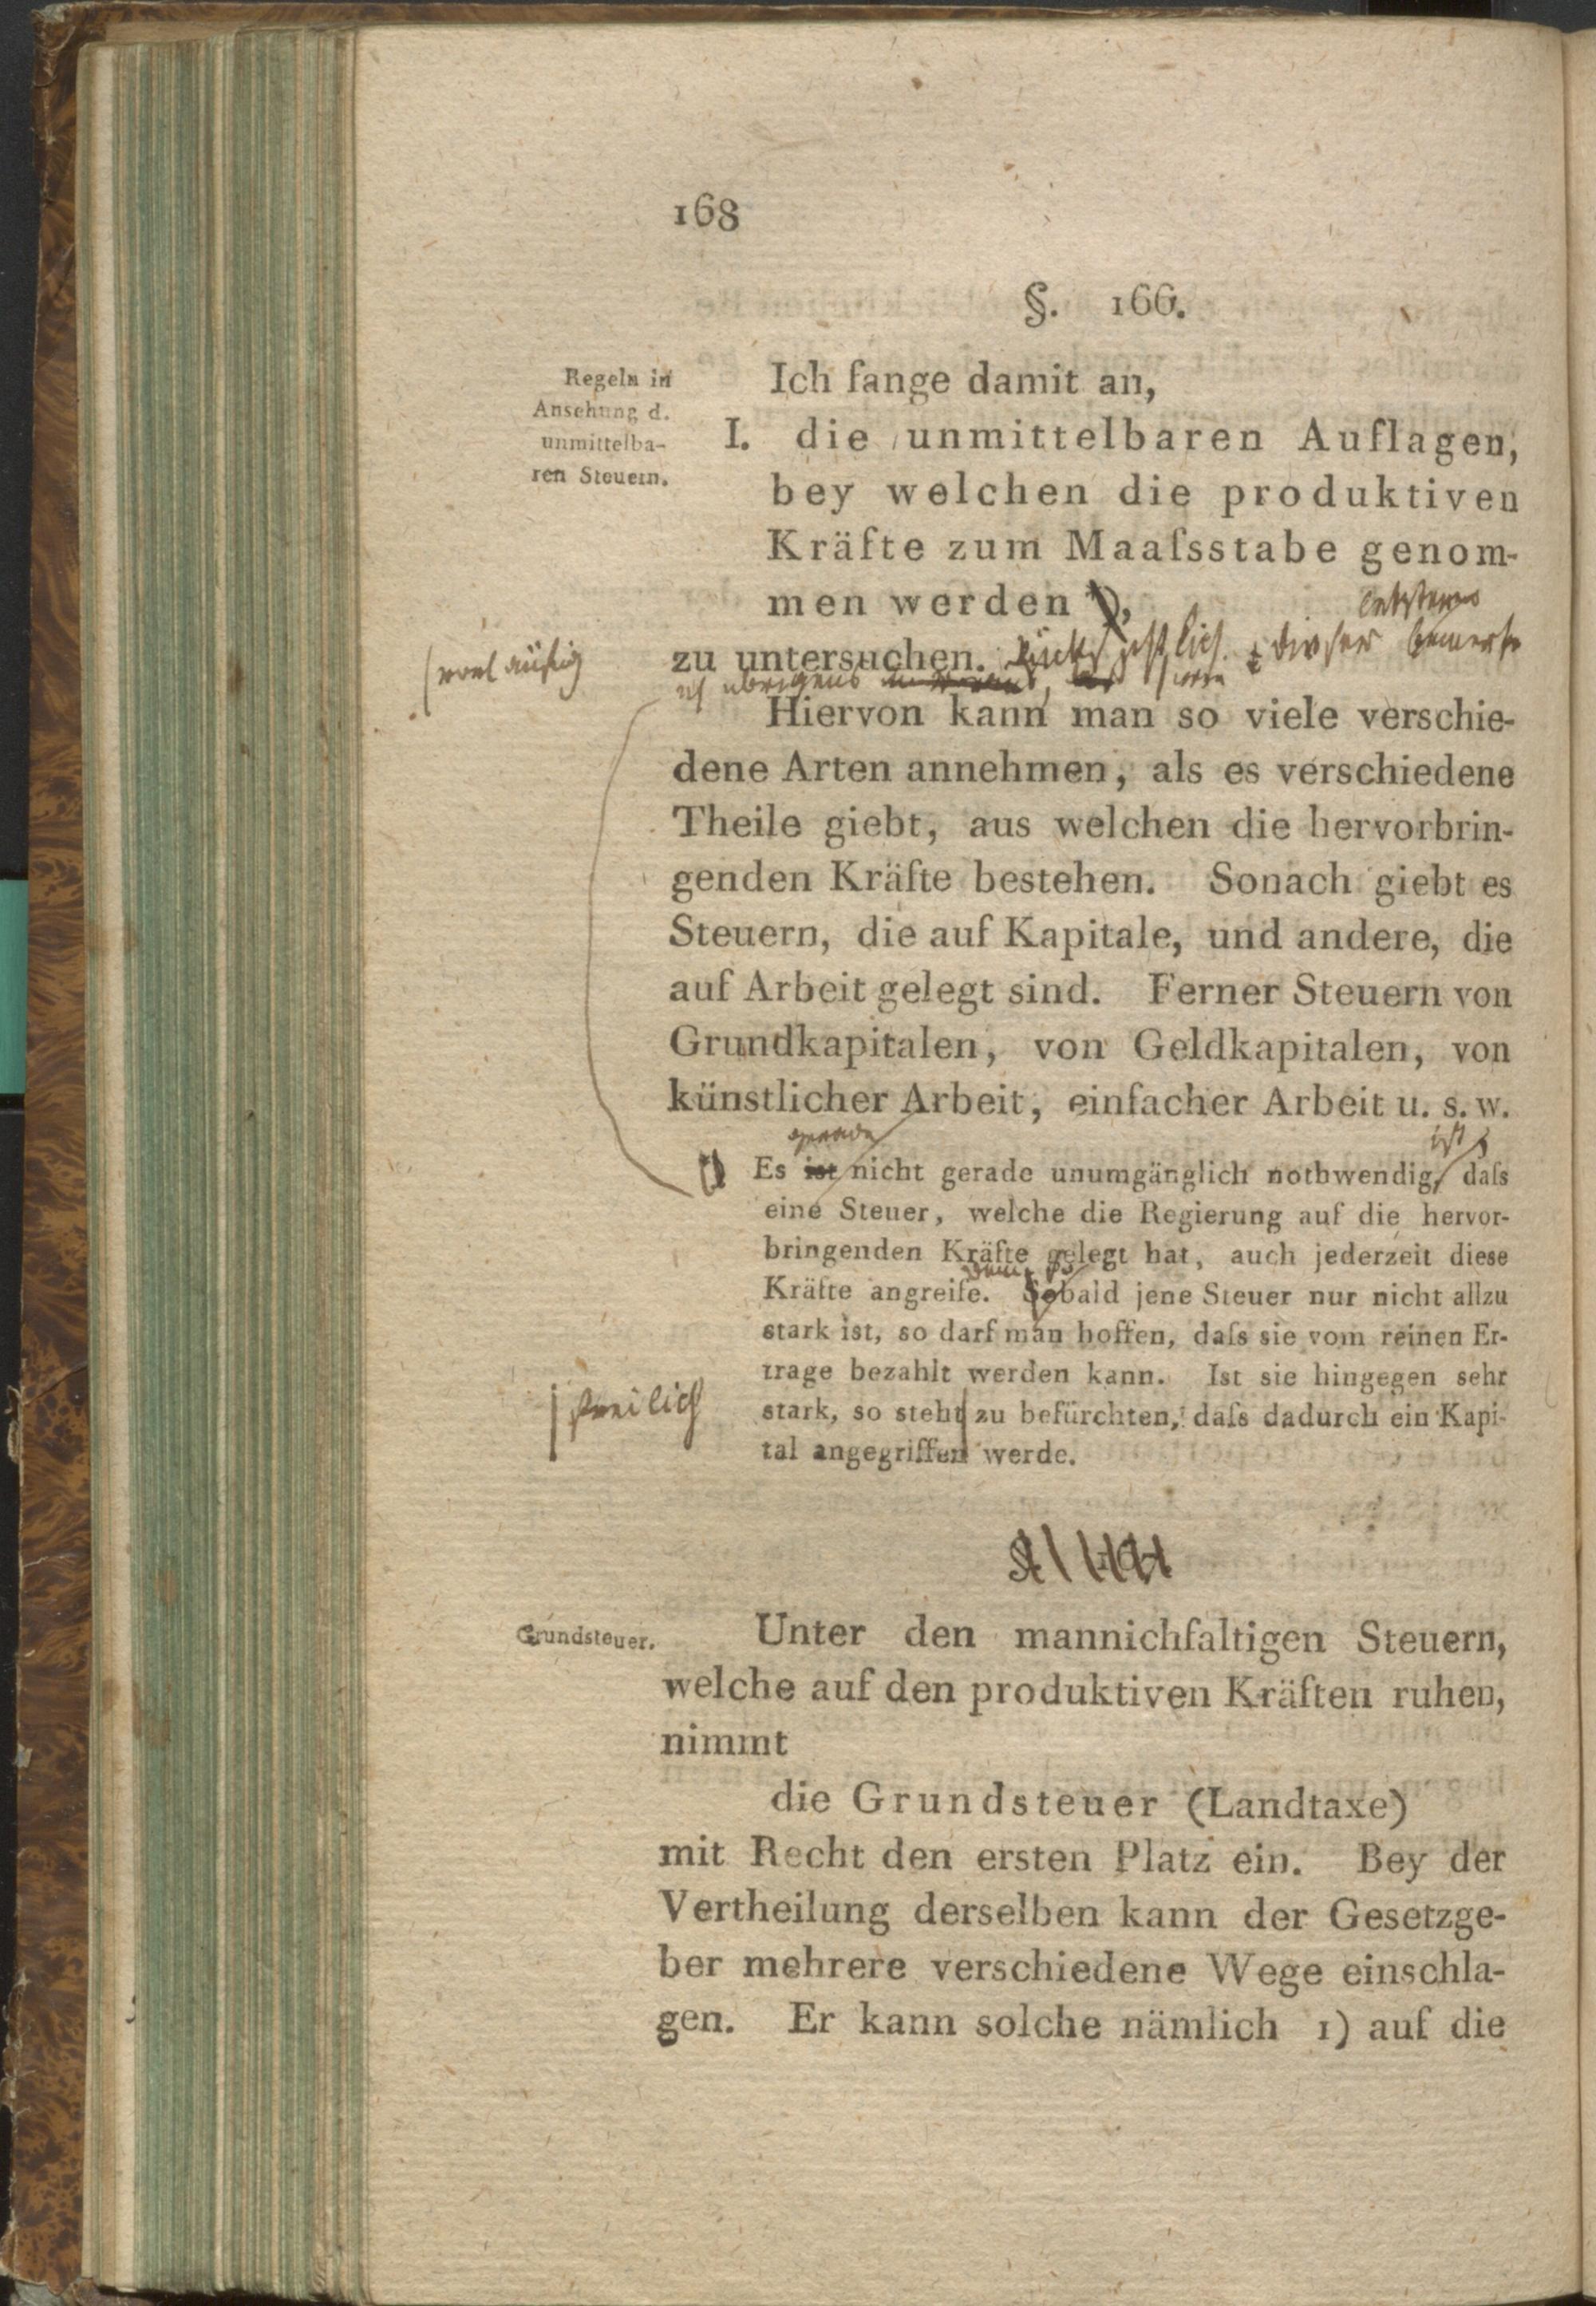 168
§. 166.
Regeln in
Ansehung d.
unmittelba-
ren Steuern.
Ich fange damit an,
I. die unmittelbaren Auflagen,
bey welchen die produktiven
Kräfte zum Maaſsstabe genom-
men werden
letzteren
zu untersuchen. Rücksichtlich dieser bemerke
vorläufig
ich übrigens
Hiervon kann man so viele verschie-
dene Arten annehmen, als es verschiedene
Theile giebt, aus welchen die hervorbrin-
genden Kräfte bestehen. Sonach giebt es
Steuern, die auf Kapitale, und andere, die
auf Arbeit gelegt sind. Ferner Steuern von
Grundkapitalen, von Geldkapitalen, von
künstlicher Arbeit, einfacher Arbeit u. s. w.
gerade ist
Es ist nicht gerade unumgänglich nothwendig, daſs
eine Steuer, welche die Regierung auf die hervor-
bringenden Kräfte gelegt hat, auch jederzeit diese
Kräfte angreife. Sobald jene Steuer nur nicht allzu
stark ist, so darf man hoffen, daſs sie vom reinen Er-
trage bezahlt werden kann. Ist sie hingegen sehr
freilich
stark, so steht zu befürchten, daſs dadurch ein Kapi-
tal angegriffen werde.
Grundsteuer.
Unter den mannichfaltigen Steuern,
welche auf den produktiven Kräften ruhen,
nimmt
die Grundsteuer (Landtaxe)
mit Recht den ersten Platz ein. Bey der
Vertheilung derselben kann der Gesetzge-
ber mehrere verschiedene Wege einschla-
gen. Er kann solche nämlich 1) auf die